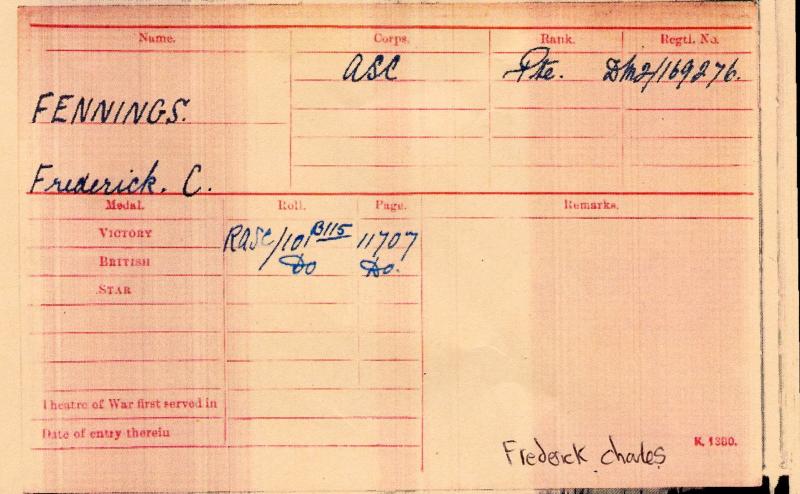 Name. Corps. Rank. Regtl. No.
ASC Pte. DM2/169276.
FENNINGS.
Frederick. C.
Medal. Roll. Page. Remarks.
VICTORY RASC/101 B115 11707
BRITISH Do Do.
STAR
Theatre of War first served in
Date of entry therein
K. 1380.
Frederick charles